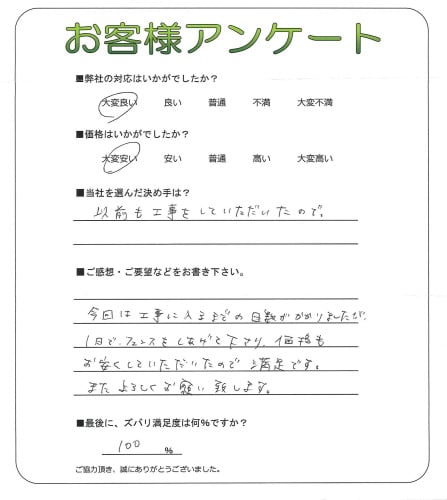 お客様アンケート
■弊社の対応はいかがでしたか?
大変良い 良い 普通 不満 大変不満
■価格はいかがでしたか?
大変安い 安い 普通 高い 大変高い
■当社を選んだ決め手は?
以前も工事をしていただいたので。
■ご感想・ご要望などをお書き下さい。
今回は工事に入るまでの日数がかかりましたが、
1日で、フェンスをしあげて下さり、価格も
お安くしていただいたので満足です。
また よろしくお願い致します。
■最後に、ズバリ満足度は何%ですか?
100 %
ご協力頂き、誠にありがとうございました。